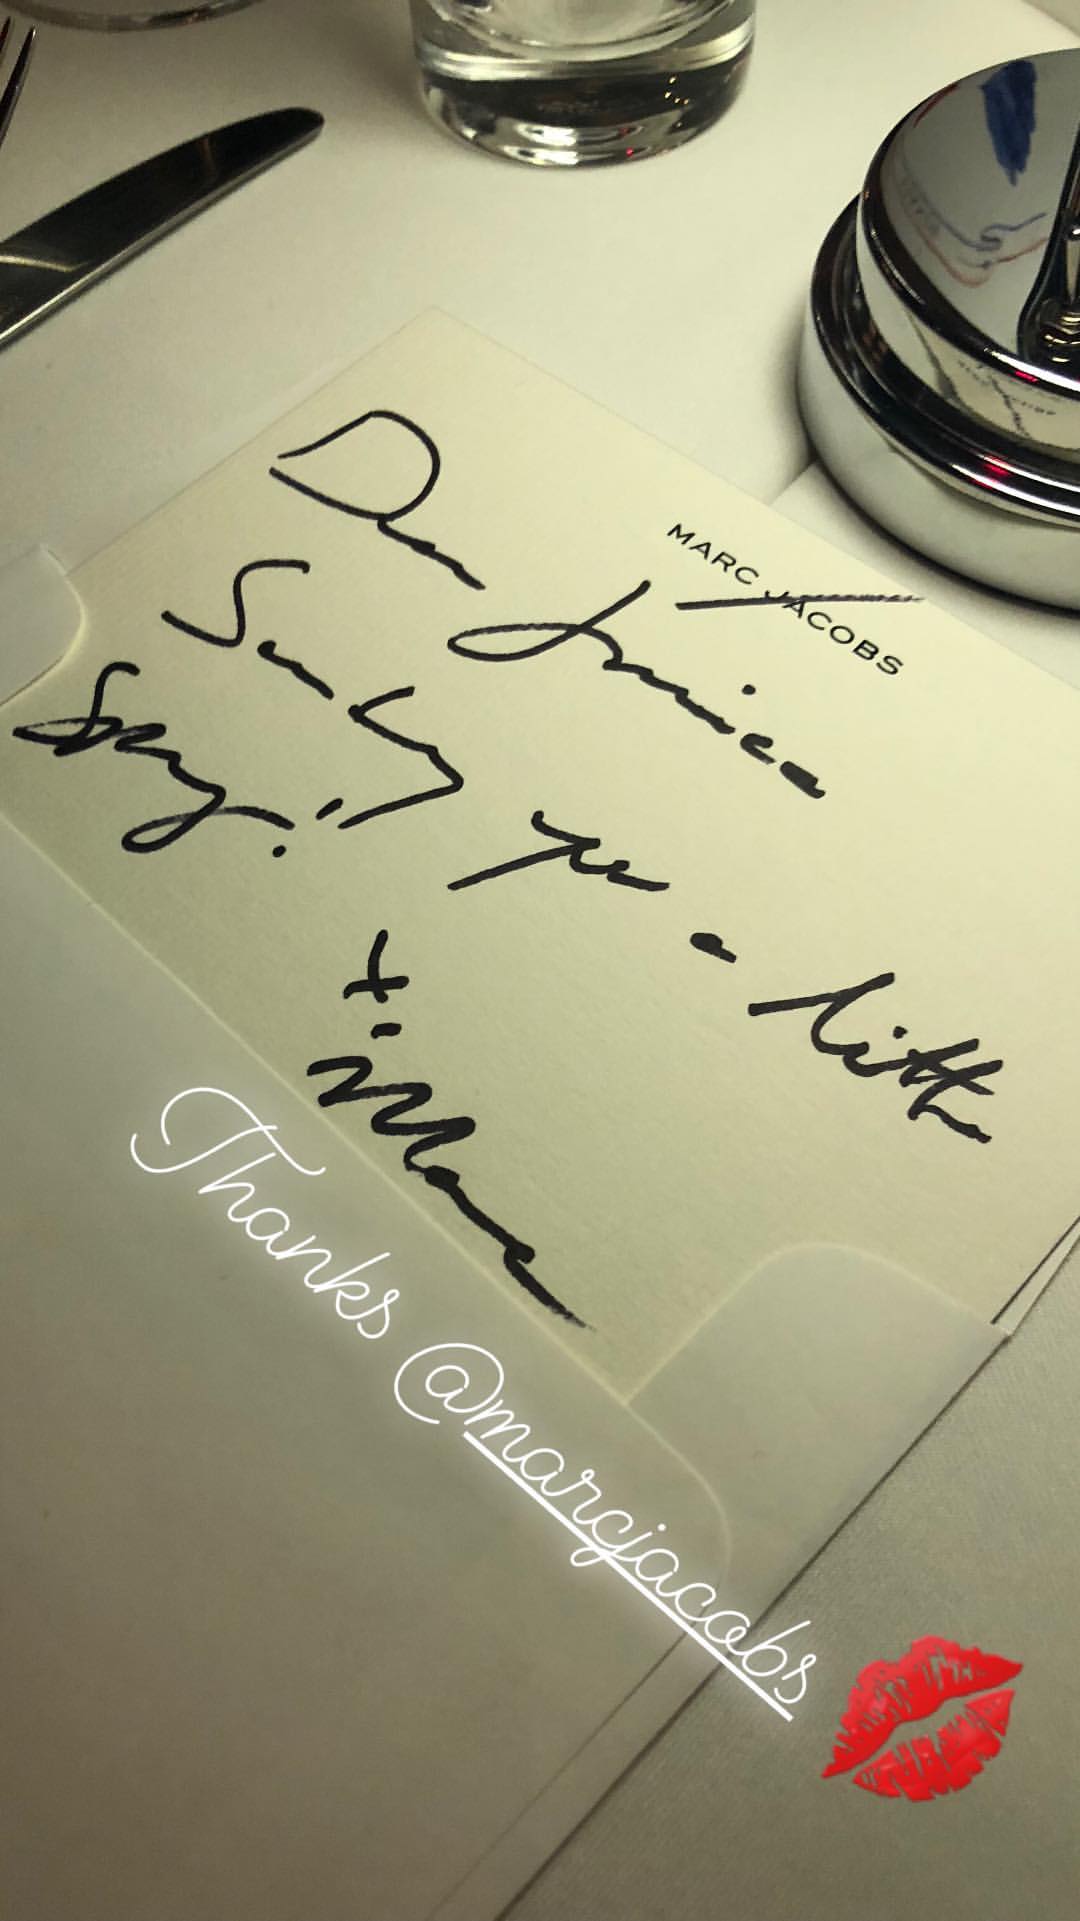 MARC JACOBS
Dear Janice
Sending you a little
Spring!!
x. Marc
Thanks @marcjacobs